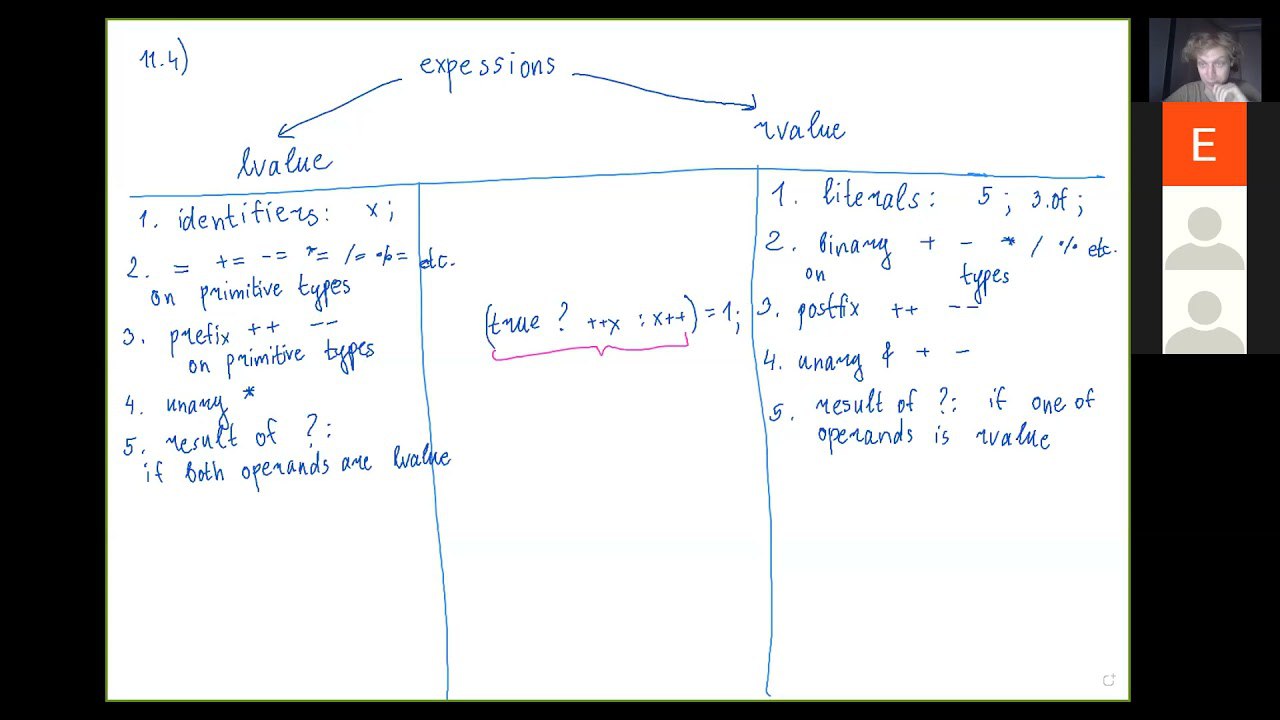 11.4)
expessions
lvalue
rvalue
1. identifiers: x;
2. = += -= *= /= %= etc.
on primitive types
3. prefix ++ --
on primitive types
4. unary *
5. result of ?:
if both operands are lvalue
(true ? ++x : x++) = 1;
1. literals: 5; 3.0f;
2. binary + - * / % etc.
on types
3. postfix ++ --
4. unary & + -
5. result of ?: if one of
operands is rvalue
E